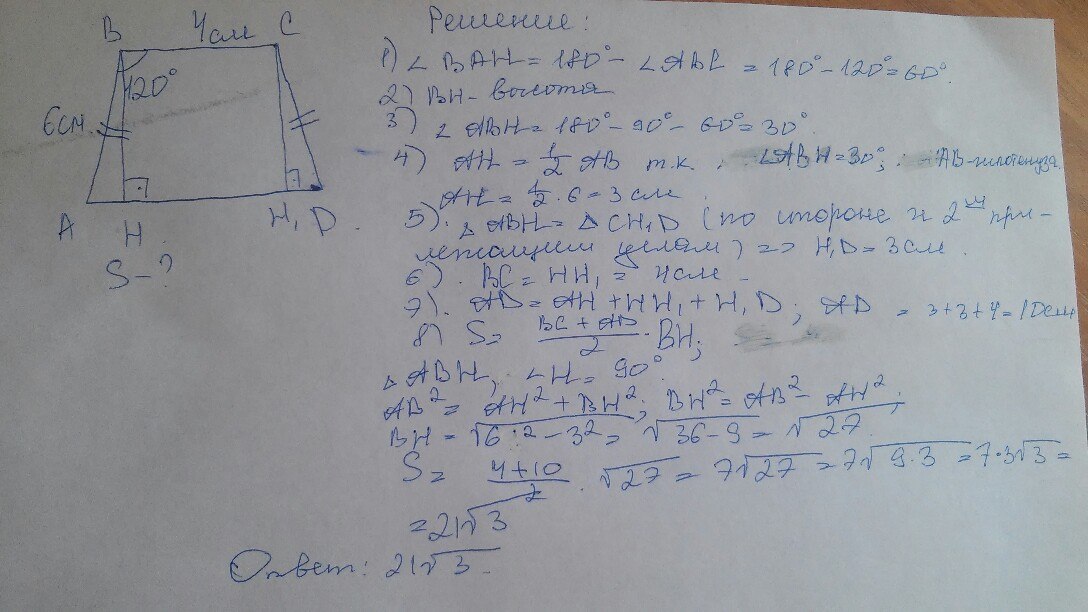 B 4см C
120°
6см.
A H H₁ D
S-?
Решение:
1) ∠ BAH = 180° - ∠ABC = 180° - 120° = 60°.
2) BH - высота
3) ∠ ABH = 180° - 90° - 60° = 30°.
4) AH = 1/2 AB т.к. ∠ABH = 30°; AB-гипотенуза.
AH = 1/2 · 6 = 3 см.
5). △ ABH = △ CH₁D (по стороне и 2ум при-
лежащим углам) => H₁D = 3 см.
6). BC = HH₁ = 4см.
7). AD = AH + HH₁ + H₁D; AD = 3+3+4=10см
8) S = (BC + AD)/2 · BH;
△ ABH, ∠H = 90°.
AB² = AH² + BH²; BH² = AB² - AH²;
BH = √6^2 - 3² = √36-9 = √27.
S = (4+10)/2 · √27 = 7√27 = 7√9·3 = 7·3√3 =
= 21√3
Ответ: 21√3.